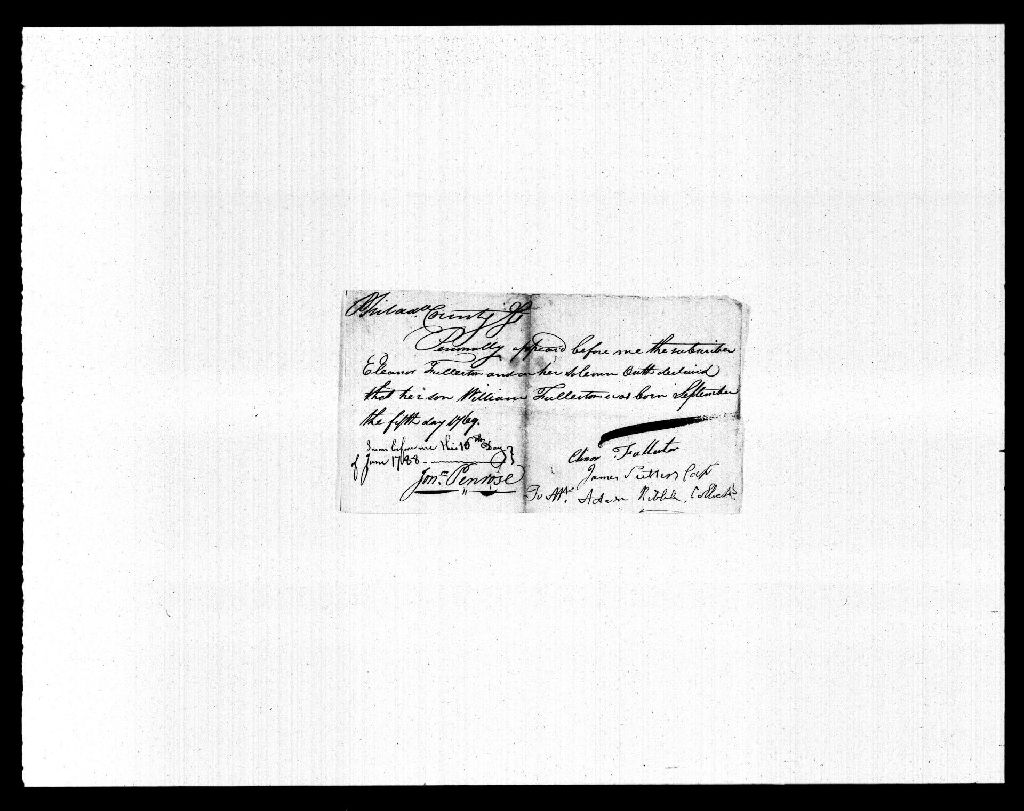 Philada. County Ss
Personally appeard before me the subscriber
Eleanor Fullerton and on her solemn Oath declared
that her son William Fullerton was born September
the fifth day 1769.
Sworn before me this 10th Day
of June 1788
Jonn. Penrose
Elenor Fullerton
James Capt
To Mr. Adam Collector